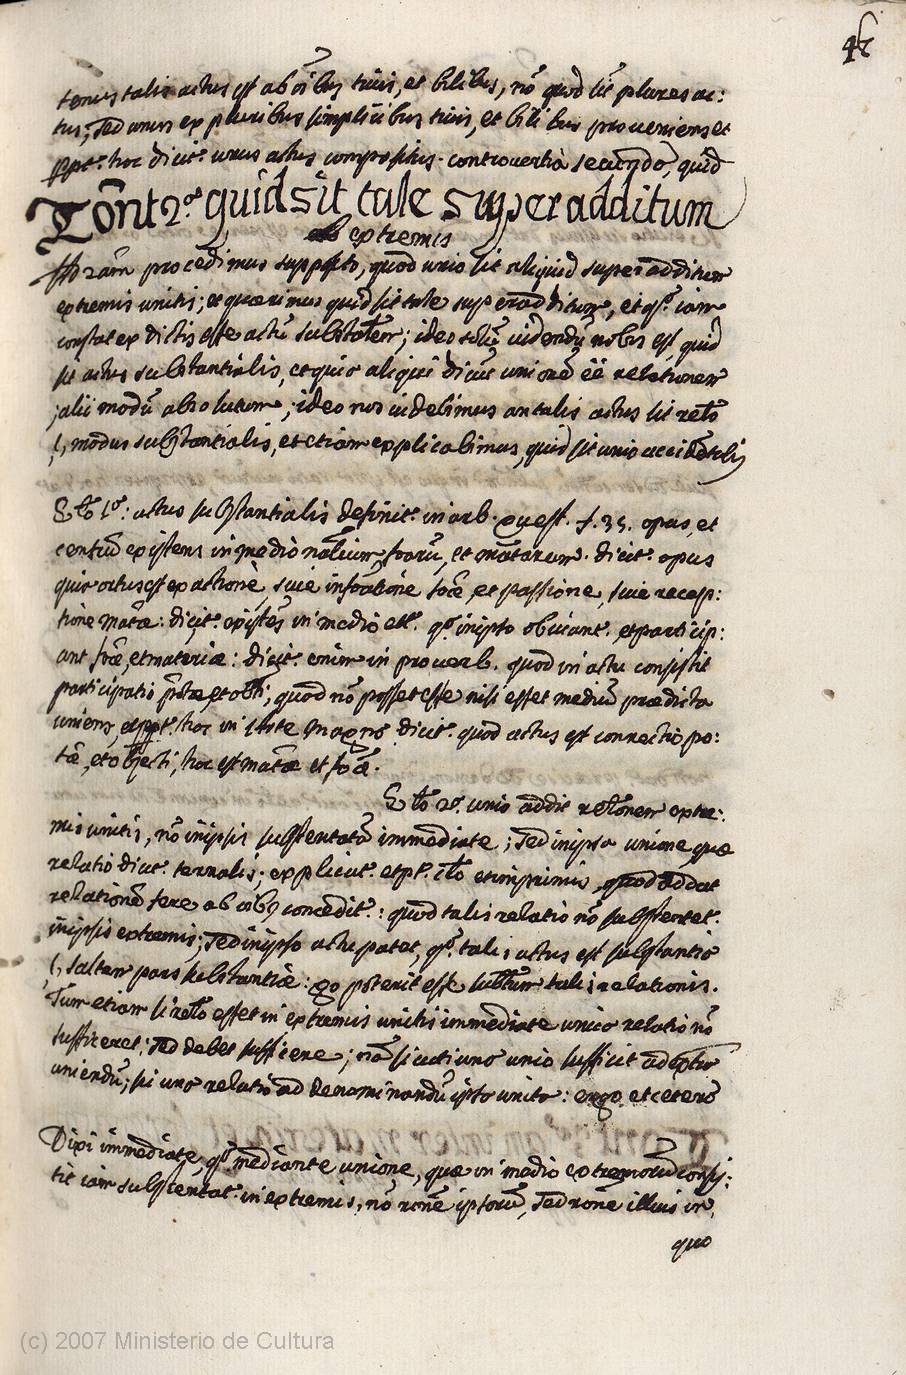 tenus talis actus est ab oībus tiuis, et bilibus, nō quod sīt plures ac:
tus; sed unus ex pluribus simplicibus tiuis, et bilibus proueniens et
ppt. hoc dicit. unus actus compositus. controuertia secūndo, quid
Cont 2ª quid sit tale superadditum
ab extremis
procedimus supposito, quod unio sit aliquid superadditum
extremis unitis; et quærimus quid sit tale superadditum, et qª. iam
constat ex dictis esse actū substātlem; ideo uidendū nobis est, quid
sit actus substantialis, et quia aliqui dicūt unionē eē relationem
alii modū absolutum; ideo nos uidebimus an talis actus sit relō
l, modus substantialis, et etiam explicabimus, quid sit unio accidētalis
1º: actus substantialis definit. in arb. quest. f. 35. opus, et
centrū existens in medio nālium foarū, et mātarum. dicit. opus
quia ortus est ex actione, siue infōatione foæ, et passione, siue recep:
tione matæ: dicit. existēs in medio etc. qª. in ipso obuiant. et particip:
ant foæ, et materiæ: dicit. enim in prouerb. quod in actu consistit
participatio pōtæ, et obti; quod nō posset esse nisi esset mediū prædicta
uniens, et ppt. hoc in Arte Magna dicit. quod actus est connectio po:
tæ, et objecti, hoc est matæ et foæ.
2ª. unio addit relōnem extre:
mis unitis, nō in ipsis substentatā immediate; sed in ipsa unione, quæ
relatio dicit. ternalis; explicat. et pt. et in primis, quod addat
relationē fere ab oībus concedit.: quod talis relatio nō substentet.
in ipsis extremis; sed in ipso actu patet, qª. talis actus est substantia
l, saltem pars substantiæ: go poterit esse subtum talis relationis.
Tum etiam si relō esset in extremis unitis immediate unica relatio nō
sufficeret; sed debet sufficere; nā sicuti una unio sufficit ad extra
uniendū; sic una relatio ad denominandū ipsa unita: ergo et cetera
Dixi immediate, qª. mediante unione, quæ in medio extremorū consis:
tit iam substentat. in extremis, nō rōne ipsorū, sed rōne illius in
quo
(c) 2007 Ministerio de Cultura